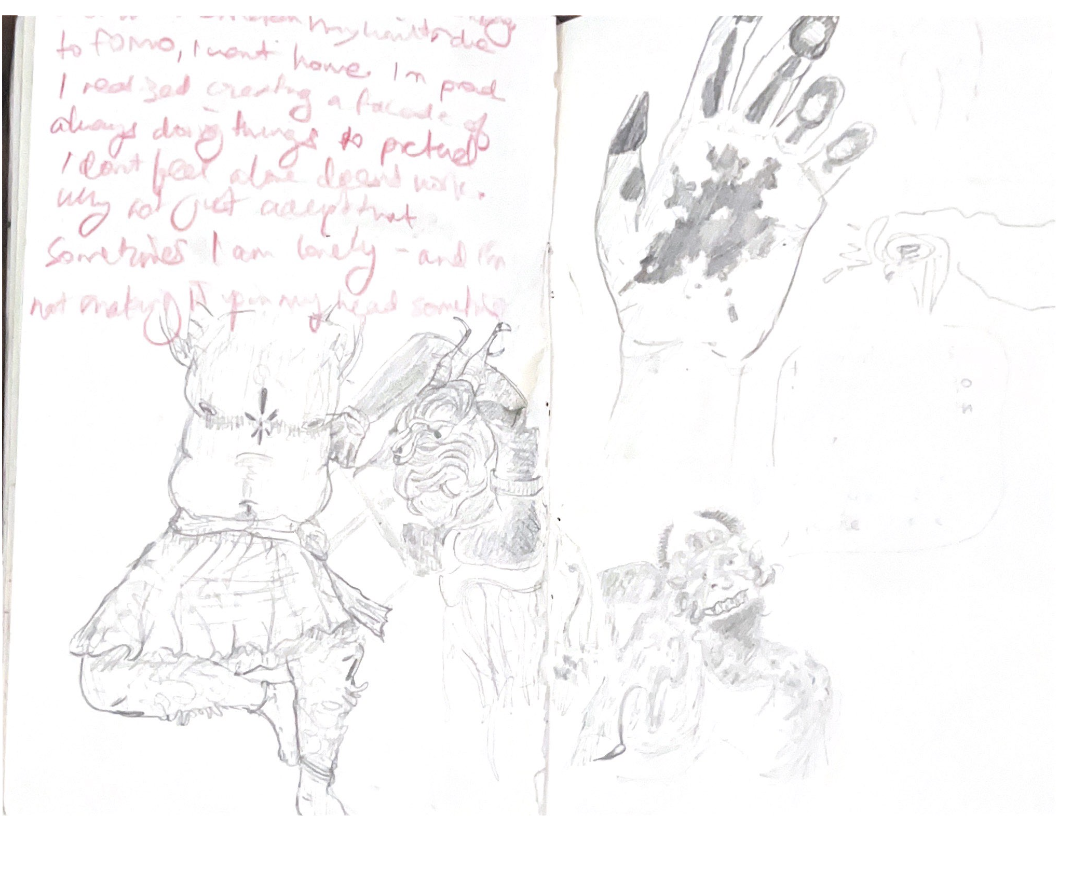 to fomo, I went home. I'm proud
I realized creating a facade of
always doing things to pretend
I dont feel alone doesnt work.
Why not just accept that
sometimes I am lonely - and I'm
not making it up in my head something